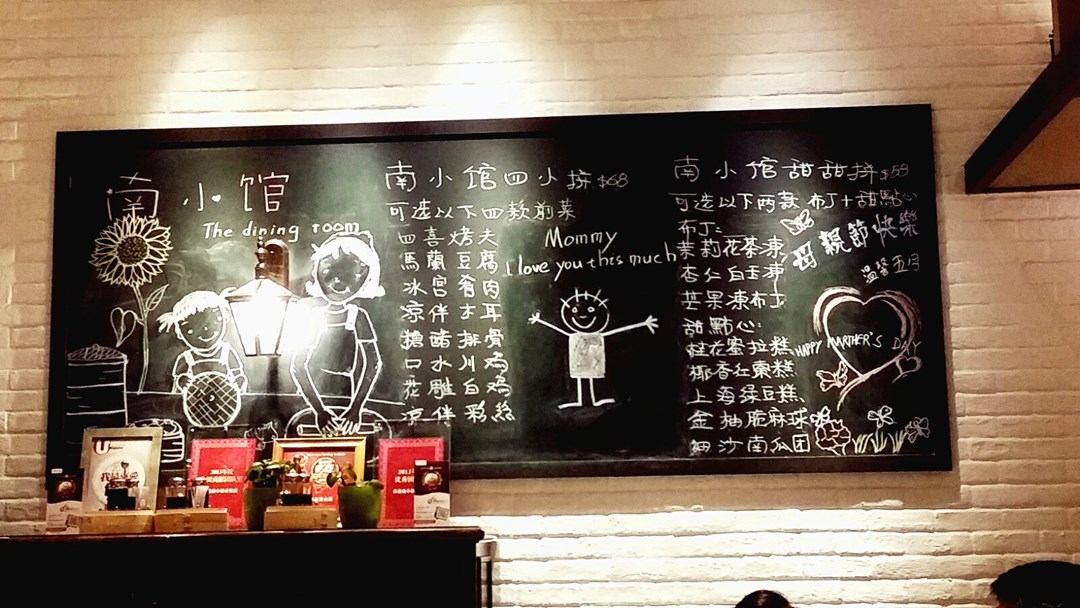 南小馆
The dining room
南小馆四小拼 $68
可选以下四款前菜
四喜烤夫
馬蘭豆腐
冰宮肴肉
凉伴木耳
糖醋排骨
口水川鸡
花雕白鸡
凉伴彩絲
Mommy
I love you this much
南小馆甜甜拼 $59
可选以下两款布丁+甜點心
布丁:
茉莉花茶凍
杏仁白玉凍
芒果凍布丁
甜點心:
桂花蜜拉糕
椰香红棗糕
上海绿豆糕
金柚脆麻球
細沙南瓜团
母親節快樂
溫馨五月
HAPPY MARTHER'S DAY